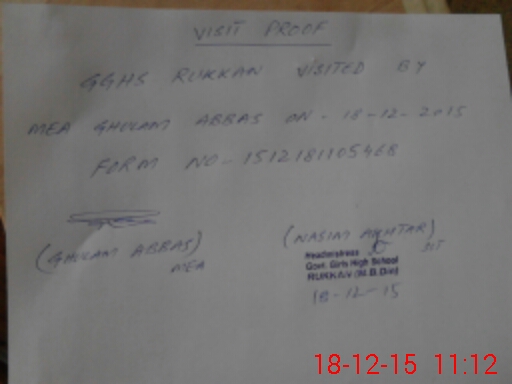 VISIT PROOF
GGHS RUKKAN VISITED BY
MEA GHULAM ABBAS ON - 18-12-2015
FORM NO - 1512181105468
(GHULAM ABBAS)
MEA
(NASIM AKHTAR)
SST
Headmistress
Govt. Girls High School
RUKKAN (M.B.Din)
18-12-15
18-12-15 11:12